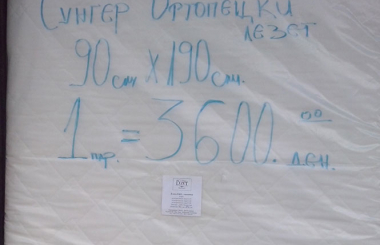 Сунгер Ортопецки
лезет
90 см x 190 см.
1 пар. = 3600.00 ден.